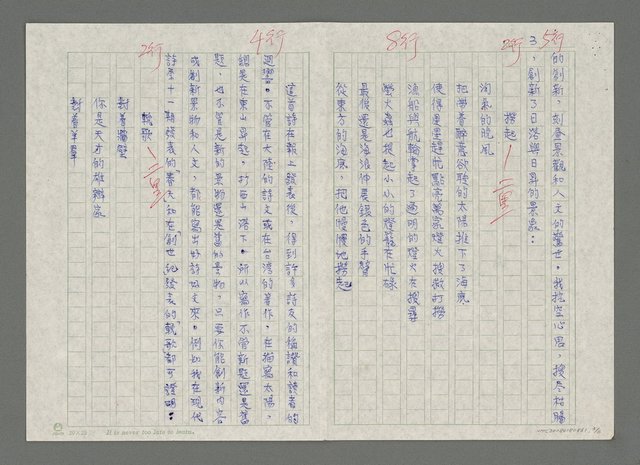 5行
的創新，刻發景觀和人文的豐世。我挖空心思，搜盡枯腸
3、創新了日落與日昇的景象：
2行
撈起—二黑
淘氣的晚風
把帶著醉意欲眠的太陽推下了海底
使得星星趕忙點亮萬家燈火搜救打撈
8行
漁船與航輪掌起了通明的燈火在搜尋
螢火蟲也提起小小的燈籠在忙碌
最後還是海浪伸展銀色的手臂
從東方的海底，把他慢慢地撈起
這首詩在報上發表後，得到許多詩友的稱讚和讀者的
4行
迴響。不管在大陸的詩文或在台灣的著作，在描寫太陽，
總是在東山昇起，打西山落下。所以寫作不管新題還是舊
題，也不管是新的景物還是舊的景物，只要你能創新內容
或創新景物和人文，都能寫出好詩好文來。例如我在現代
詩季十一期發表的「春天」和在「創世紀」發表的「輓歌」都可證明：
2行
輓歌—二黑
對着牆壁
你是天才的雄辯家
對着羊羣
20×25 It is never too late to learn.